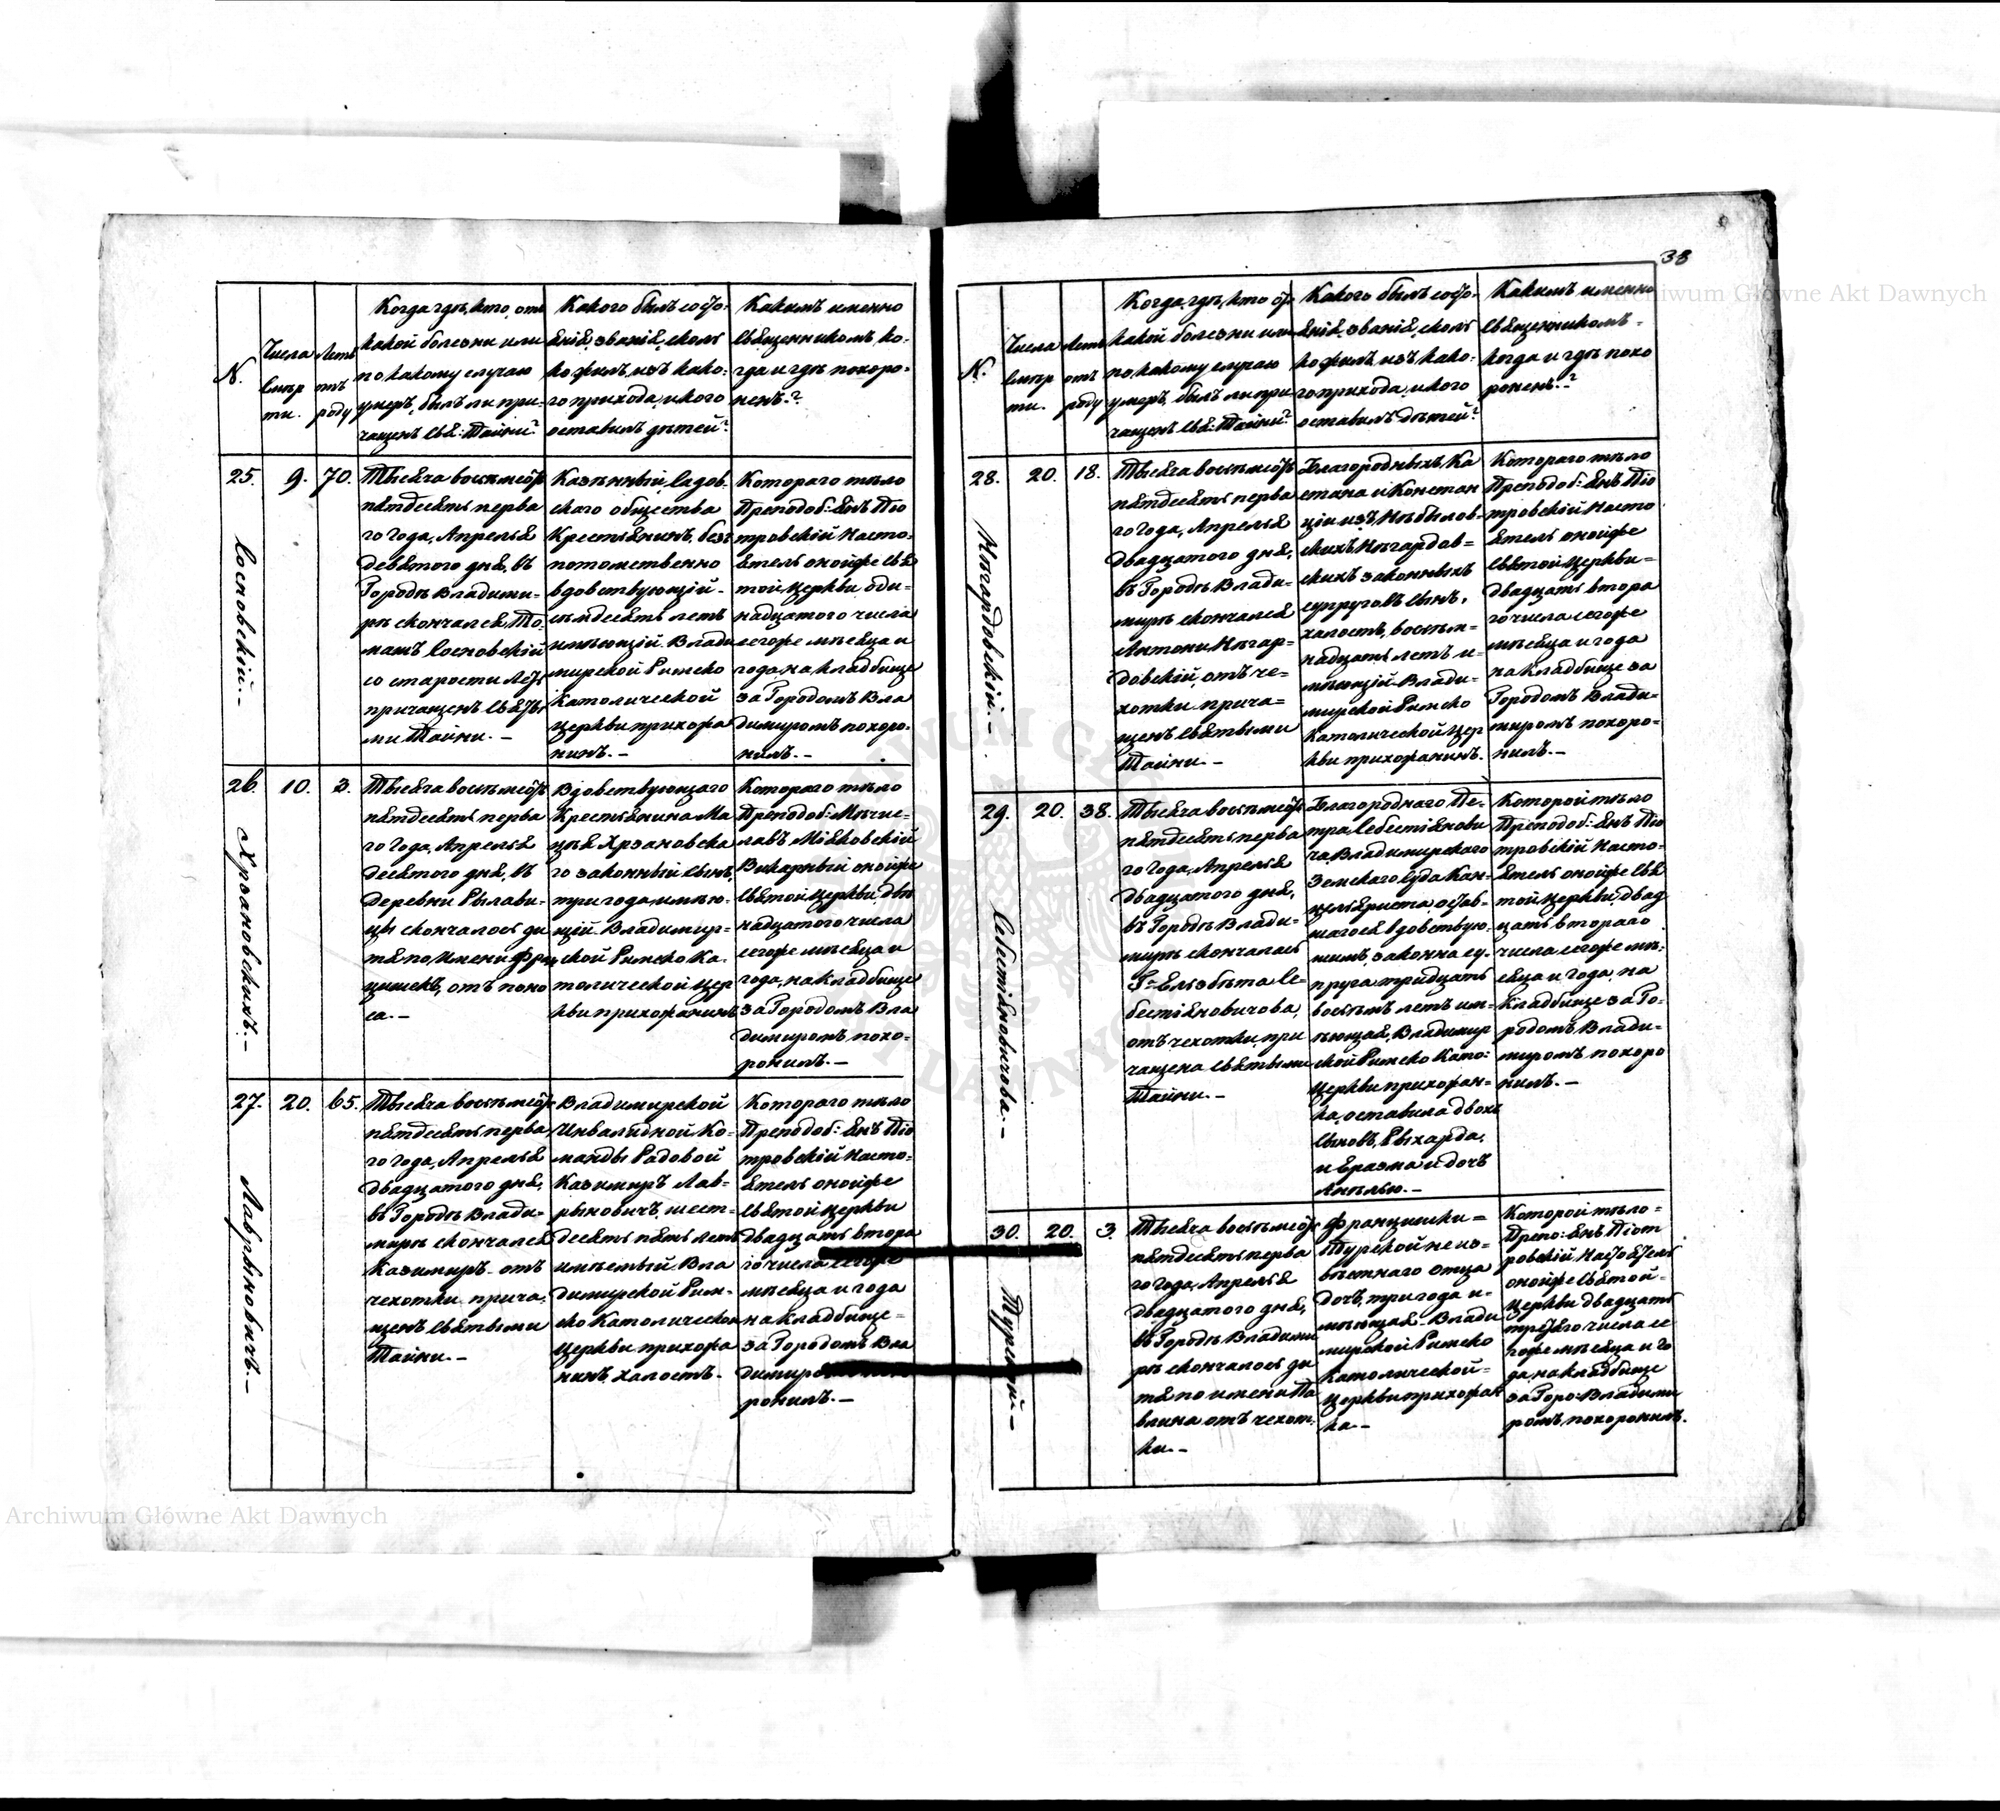 38
Archiwum Główne Akt Dawnych
N.
Числа
смер
ти.
Летъ
отъ
роду
Когда, где, кто, отъ
какой болезни или
по какому случаю
умеръ, былъ ли при-
чащенъ Свя: Тайни?
Какого былъ состо-
янія, званія, сколь
ко жилъ, изъ како-
го прихода, и кого
оставилъ дѣтей?
Какимъ именно
священникомъ, ко-
гда и гдѣ похоро-
ненъ.?
25.
Сосновскій. –
9.
70.
Тысяча восемьсотъ
пятдесятъ перва
го года, Апрелья
девятого дня, въ
Городѣ Владими-
рѣ скончался То-
машъ Сосновскій
со старости летъ
причащенъ святы
ми Тайни. –
Казѣнный Садов-
ского общества
Крестьянинъ, безъ
потомственно
вдовствующій
семдесятъ летъ
имѣющій Влади
мирской Римско
Католической
церкви прихожа
нинъ. –
Котораго тѣло
Преподоб: Янъ Піо
тровскій Насто-
ятель онойже свя
той Церкви оди-
надцатого числа
сегоже мѣсяца и
года, на кладбище
за Городомъ Вла
димиромъ похоро-
нилъ. –
26.
Хрзановскихъ. –
10.
3.
Тысяча восемьсотъ
пятдесятъ перва
го года, Апрелья
десятого дня, въ
деревни Рылави-
цы скончалось ди
тя по имени Фран
цишекъ, отъ поно
са. –
Вдовствующаго
Крестьянина Ма
цѣя Хрзановска
го законный сынъ,
три года имѣю-
щій Владимир-
ской Римско Ка-
толической Цер
кви прихожанинъ
Котораго тѣло
Преподоб: Мѣчис-
лавъ Мяковскій
Викарный онойже
святой Церкви, две
надцатого числа
сегоже мѣсяца и
года, на кладбище
за Городомъ Вла
димиромъ похо-
ронилъ. –
27.
Лаврыновичъ. –
20.
65.
Тысяча восемьсотъ
пятдесятъ перва
го года, Апрелья
двадцатого дня,
въ Городѣ Влади-
мирѣ скончался
Казимиръ отъ
чехотки прича-
щенъ святыми
Тайни. –
Владимирской
Инвалидной Ко-
манды Рядовой
Казимиръ Лав-
рыновичъ, шест-
десятъ пять летъ
имѣемый Вла
димирской Рим-
ско Католической
Церкви прихожа
нинъ, халостъ.
Котораго тѣло
Преподоб: Янъ Піо
тровскій Насто-
ятель онойже
святой церкви
двадцать втора
го числа сегоже
мѣсяца и года
на кладбище
за Городомъ Вла
димиромъ
ронилъ. –
N.
Числа
смер
ти.
Летъ
отъ
роду
Когда, где, кто от
какой болезни или
по какому случаю
умеръ, былъ ли при
чащенъ Свя: Тайни?
Какого былъ состо-
янія, званія, сколь
ко жилъ, изъ како-
го прихода, и кого
оставилъ дѣтей?
Какимъ именно
священникомъ
когда и гдѣ похо
роненъ?
28.
20.
18.
Тысяча восемьсотъ
пятдесятъ перва
го года, Апрелья
двадцатого дня,
въ Городѣ Влади-
мирѣ скончался
Антони
довскій, отъ че-
хотки прича-
щенъ святыми
Тайни. –
Благородныхъ Ка
етана и Констан
ціи изъ
законныхъ
супруговъ сынъ,
халостъ, восем-
надцать летъ и-
мѣющій Влади-
мирской Римско
Католической Цер
кви прихожанинъ.
Котораго тѣло
Преподоб: Янъ Піо
тровскій Насто
ятель онойже
святой Церкви
двадцать втора
го числа сегоже
мѣсяца и года
на кладбище за
Городомъ Влади-
миромъ похоро-
нилъ. –
29.
Себестіяновичова. –
20.
38.
Тысяча восемьсотъ
пятдесятъ перва
го года, Апрелья
двадцатого дня,
въ Городѣ Влади-
мирѣ скончалась
Г-а Ельзбѣта Се-
бестіяновичова,
отъ чехотки, при
чащена святыми
Тайни. –
Благородного Пе-
тра Себестіянови
ча, Владимирского
Земского Суда Кан-
целяриста, остав-
шагося вдовствую-
щимъ, законна су-
пруга тридцать
восемъ летъ им-
ѣющая, Владимир
ской Римско Като:
Церкви прихожан-
ка, оставила двохъ
сыновъ, Рыхарда,
и Еразма и дочь
Анѣлью. –
Которой тѣло
Преподоб: Янъ Піо
тровскій Насто-
ятель онойже свя
той Церкви, двад
цать второго
числа сегоже мѣ-
сяца и года, на
кладбище за Го-
родомъ Влади-
миромъ похоро
нилъ. –
30.
Турскій –
20.
3.
Тысяча восемьсотъ
пятдесятъ перва
го года, Апрелья
двадцатого дня,
въ Городѣ Владими
рѣ скончалось ди
тя по имени Па
влина отъ чехот-
ки. –
Францишки
Турской не из-
вѣстнаго отца
дочь, три года и-
мѣющая Влади
мирской Римско
Католической
Церкви прихожан
ка. –
Которой тѣло
Препо: Янъ Піот
ровскій Настоятель
онойже святой
Церкви двадцать
третьего числа се
гоже мѣсяца и го
да на кладбище
за Горо: Владими
ромъ, похоронилъ.
Archiwum Główne Akt Dawnych